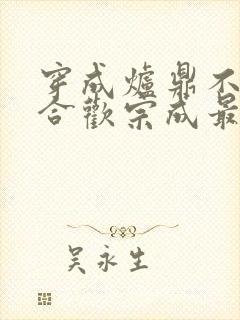 穿成爐鼎不
合歡宗成最
吴永生